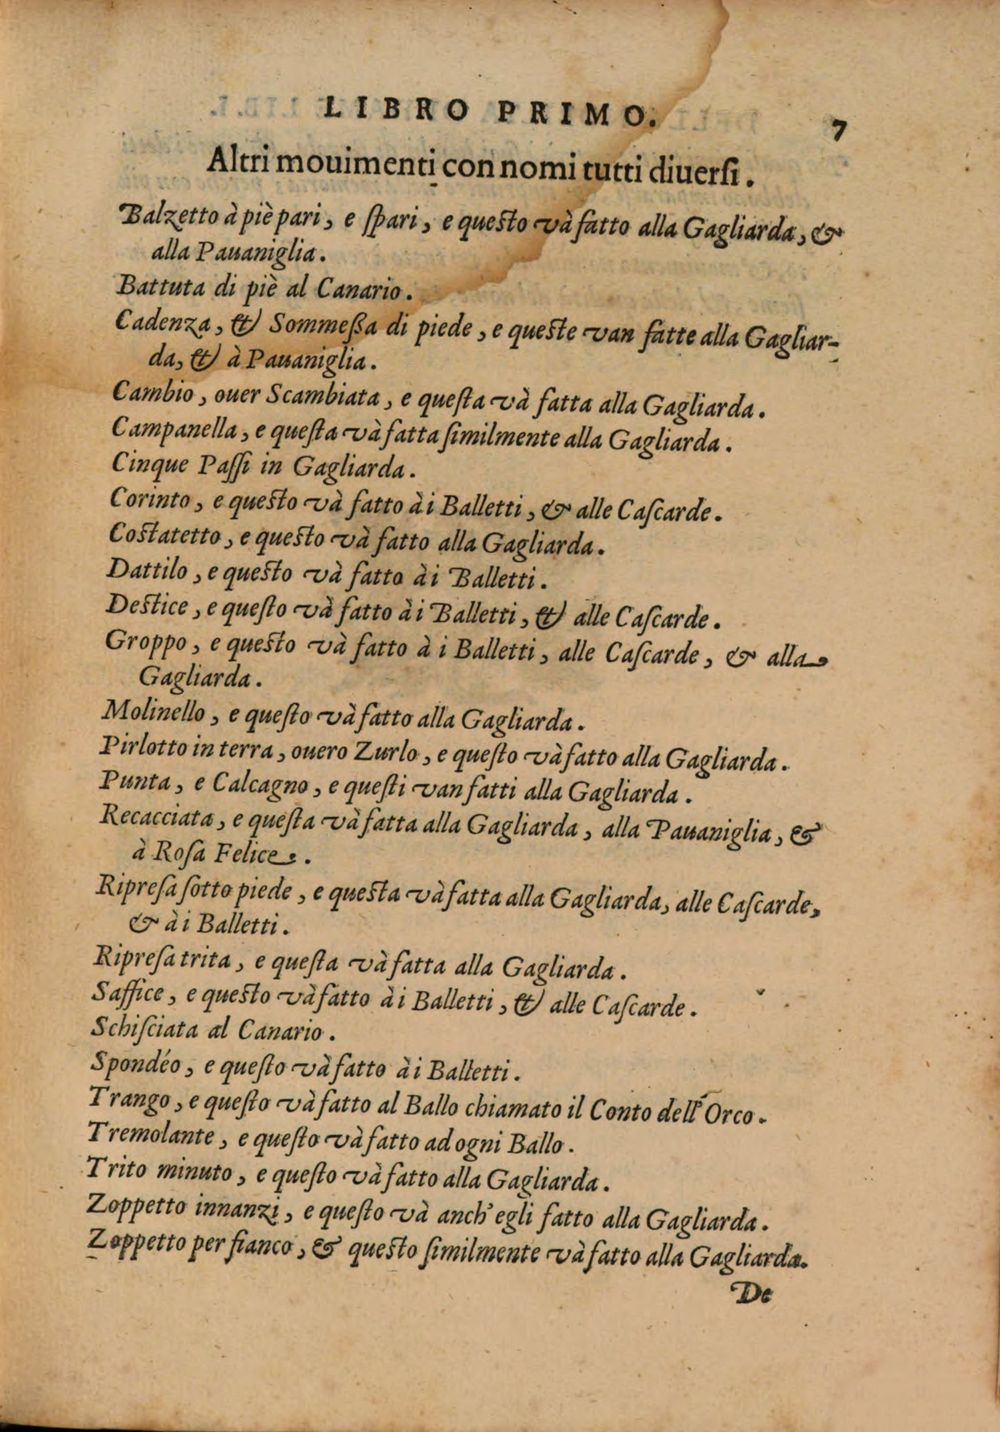 LIBRO PRIMO. 7
Altri mouimenti con nomi tutti diuerſi.
Balzetto à piè pari, e ſpari, e queſto và fatto alla Gagliarda, &
alla Pauaniglia.
Battuta di piè al Canario.
Cadenza, & Sommeſſa di piede, e queſte van fatte alla Gagliar-
da, & à Pauaniglia.
Cambio, ouer Scambiata, e queſta và fatta alla Gagliarda.
Campanella, e queſta và fatta ſimilmente alla Gagliarda.
Cinque Paſſi in Gagliarda.
Corinto, e queſto và fatto à i Balletti, & alle Caſcarde.
Coſtatetto, e queſto và fatto alla Gagliarda.
Dattilo, e queſto và fatto à i Balletti.
Deſtice, e queſto và fatto à i Balletti, & alle Caſcarde.
Groppo, e queſto và fatto à i Balletti, alle Caſcarde, & alla
Gagliarda.
Molinello, e queſto và fatto alla Gagliarda.
Pirlotto in terra, ouero Zurlo, e queſto và fatto alla Gagliarda.
Punta, e Calcagno, e queſti van fatti alla Gagliarda.
Recacciata, e queſta và fatta alla Gagliarda, alla Pauaniglia, &
à Roſa Felice.
Ripreſa ſotto piede, e queſta và fatta alla Gagliarda, alle Caſcarde,
& à i Balletti.
Ripreſa trita, e queſta và fatta alla Gagliarda.
Saffice, e queſto và fatto à i Balletti, & alle Caſcarde.
Schiſciata al Canario.
Spondéo, e queſto và fatto à i Balletti.
Trango, e queſto và fatto al Ballo chiamato il Conto dell'Orco.
Tremolante, e queſto và fatto ad ogni Ballo.
Trito minuto, e queſto và fatto alla Gagliarda.
Zoppetto innanzi, e queſto và anch'egli fatto alla Gagliarda.
Zoppetto per fianco, & queſto ſimilmente và fatto alla Gagliarda.
De